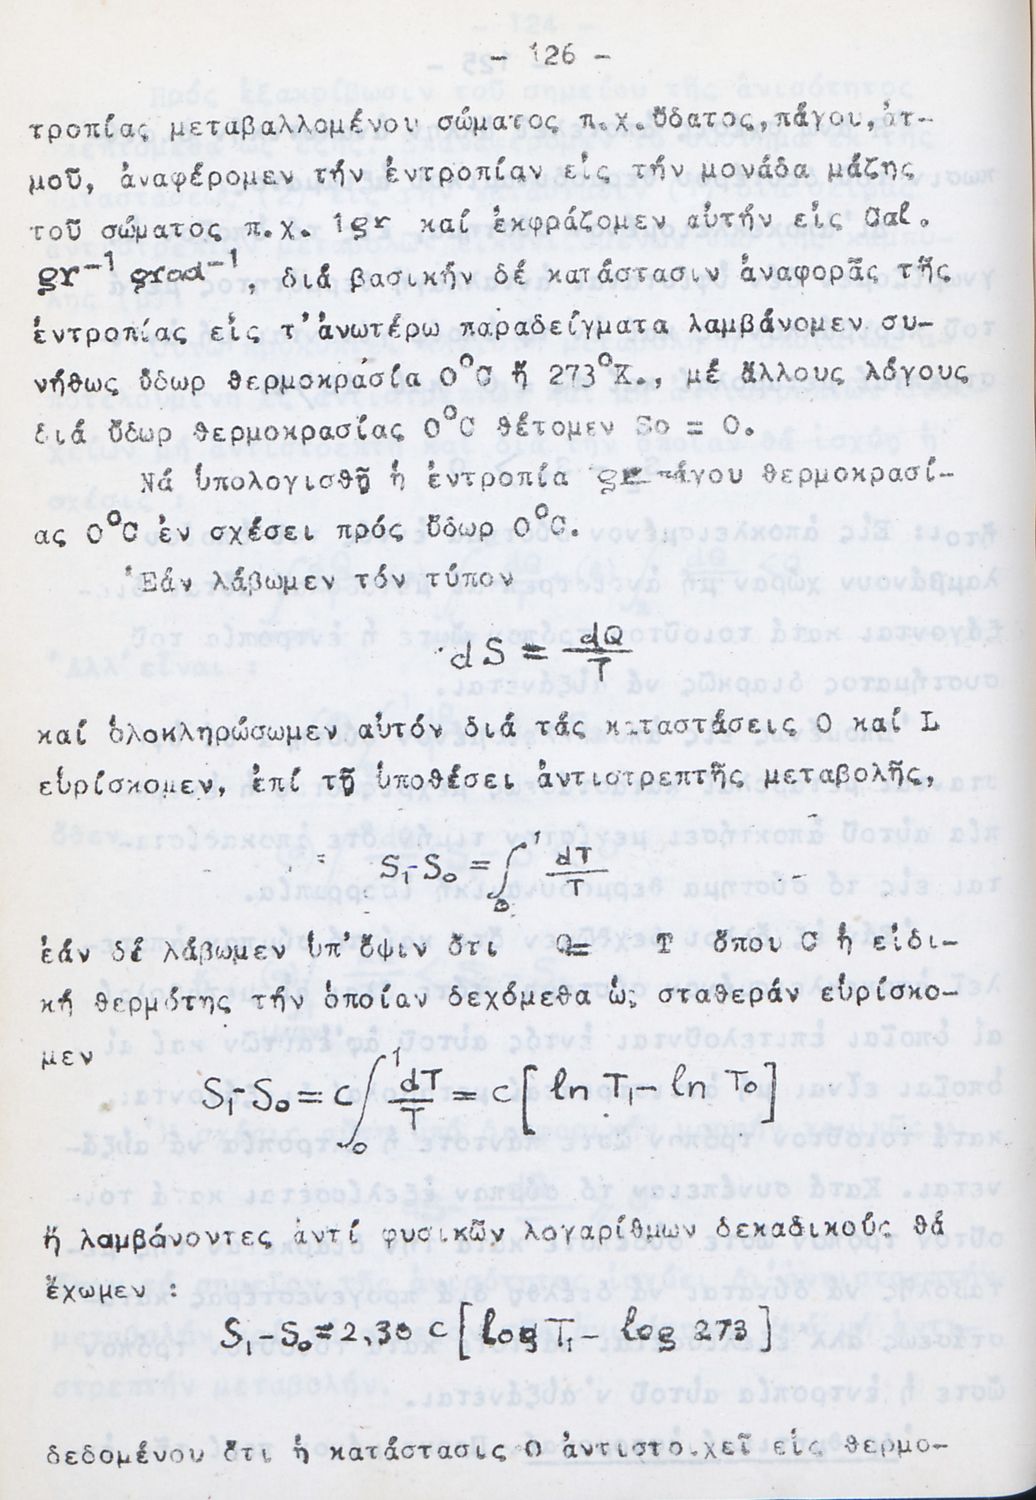 - 126 -
τροπίας μεταβαλλομένου σώματος π.χ. ὕδατος, πάγου, ἀτ-
μοῦ, ἀναφέρομεν τήν ἐντροπίαν εἰς τήν μονάδα μάζης
τοῦ σώματος π.χ. 1gr καί ἐκφράζομεν αὐτήν εἰς Cal.
gr⁻¹ grad⁻¹, διά βασικήν δέ κατάστασιν ἀναφορᾶς τῆς
ἐντροπίας εἰς τ'ἀνωτέρω παραδείγματα λαμβάνομεν συ-
νήθως ὕδωρ θερμοκρασία 0°C ἤ 273°K., μέ ἄλλους λόγους
διά ὕδωρ θερμοκρασίας 0°C θέτομεν So = 0.
Νά ὑπολογισθῇ ἡ ἐντροπία gr πάγου θερμοκρασί-
ας 0°C ἐν σχέσει πρός ὕδωρ 0°C.
Ἐάν λάβωμεν τόν τύπον
dS = dQ/T
καί ὁλοκληρώσωμεν αὐτόν διά τάς καταστάσεις 0 καί L
εὑρίσκομεν, ἐπί τῇ ὑποθέσει ἀντιστρεπτῆς μεταβολῆς,
S₁-S₀ = ∫₀¹ dT/T
ἐάν δέ λάβωμεν ὑπ'ὄψιν ὅτι Q= T ὅπου C ἡ εἰδι-
κή θερμότης τήν ὁποίαν δεχόμεθα ὡς σταθεράν εὑρίσκο-
μεν
S₁-S₀ = c∫₀¹ dT/T = c[ln T₁ - ln T₀]
ἤ λαμβάνοντες ἀντί φυσικῶν λογαρίθμων δεκαδικούς θά
ἔχωμεν :
S₁-S₀=2,30 c[log T₁ - log 273]
δεδομένου ὅτι ἡ κατάστασις 0 ἀντιστοιχεῖ εἰς θερμο-